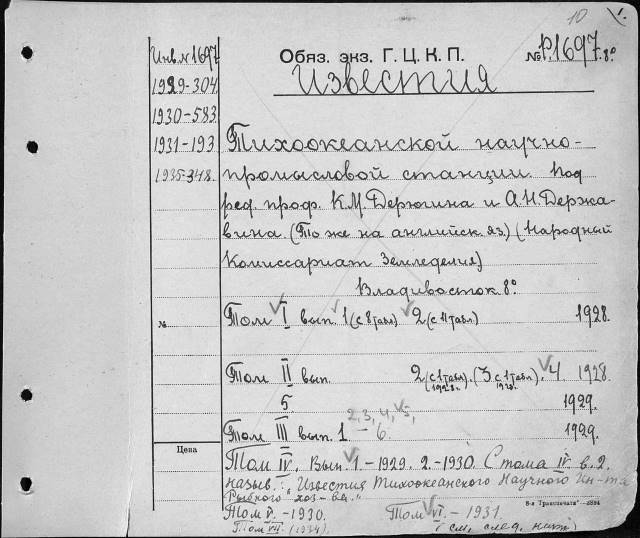 10 1.
Инв. № 1697
Обяз. экз. Г. Ц. К. П. № Р.1697. 8°
1929-304.
Известия
1930-583.
1931-193
Тихоокеанской научно-
1935-348.
промысловой станции. Под
ред. проф. К.М. Дерюгина и А.Н. Держа-
вина. (То же на английск. яз.) (Народный
Комиссариат Земледелия)
Владивосток. 8°.
№
Том I вып. 1 (с 8 табл) 2 (с 11 табл.) 1928.
Том II вып. 2 (с 1 табл). (3 с 1 табл.). 4. 1928.
1928. 1928.
5. 1929.
2, 3, 4, 5,
Том III вып. 1 – 6. 1929.
Цена
Том IV. Вып. 1. – 1929. 2. – 1930. С тома IV в. 2.
назыв.: "Известия Тихоокеанского Научного Ин-та
Рыбного хоз-ва."
8-я Транспечати – 3894
Том V. – 1930. Том VI. – 1931.
Том VII. (1934). (см. след. лит.)